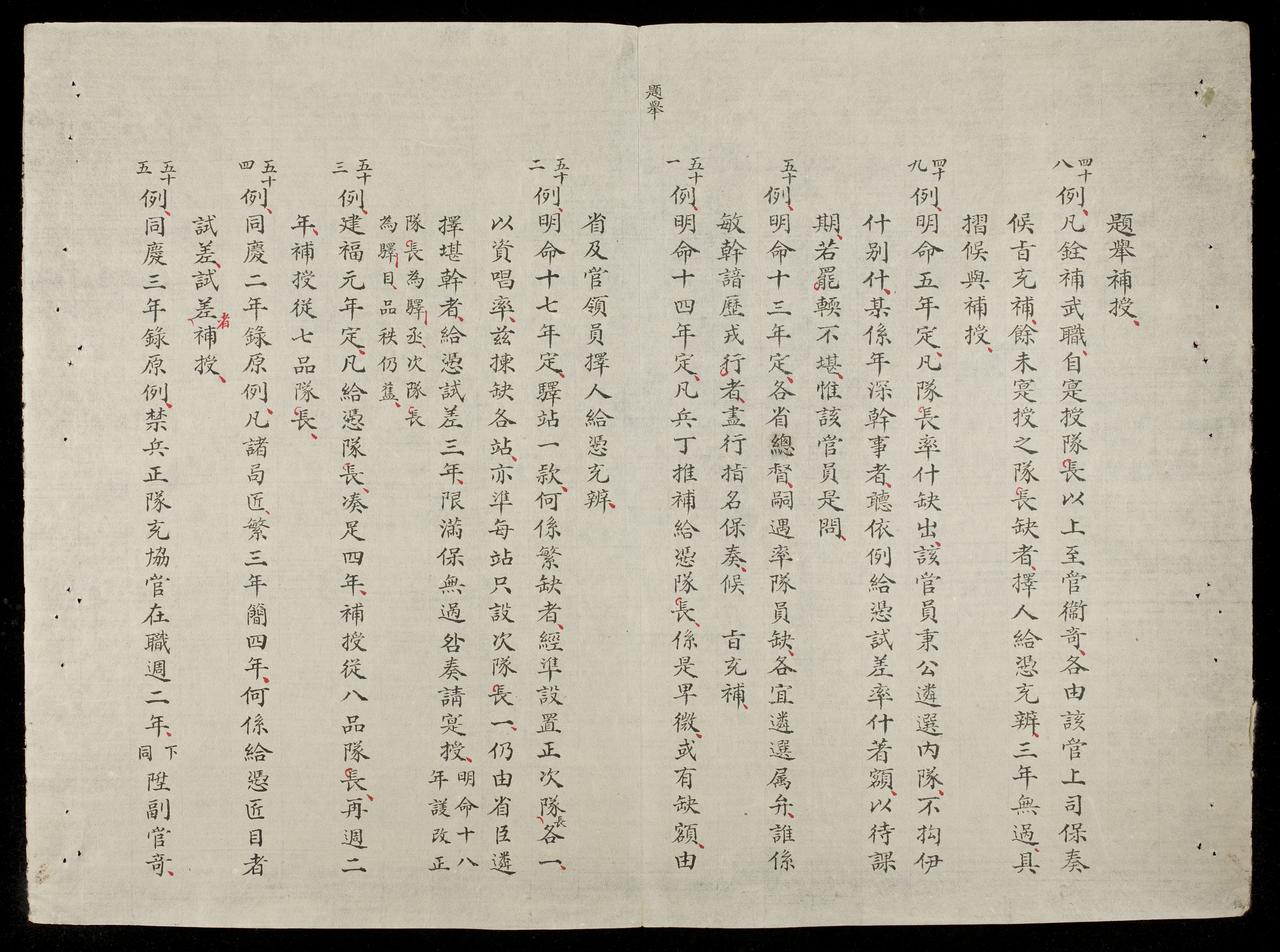 題舉補授
四十八例凡銓補武職自寔授隊長以上至管衞奇各由該管上司保奏
候旨充補餘未寔授之隊長缺者擇人給憑充辨三年無過具
摺候與補授
四十九例明命五年定凡隊長率什缺出該官員秉公遴選內隊不拘伊
什別什某係年深幹事者聽依例給憑試差率什著額以待課
期若罷輭不堪惟該官員是問
五十例明命十三年定各省總督嗣遇率隊員缺各宜遴選属弁誰係
敏幹諳歷戎行者盡行指名保奏候 旨充補
題舉
五十一例明命十四年定凡兵丁推補給憑隊長係是卑微或有缺額由
省及官領員擇人給憑充辨
五十二例明命十七年定驛站一款何係繁缺者經準設置正次隊長各一
以資唱率玆揀缺各站亦準每站只設次隊長一仍由省臣遴
擇堪幹者給憑試差三年限滿保無過咎奏請寔授明命十八年議改正
隊長為驛丞次隊長為驛目品秩仍舊
五十三例建福元年定凡給憑隊長凑足四年補授從八品隊長再週二
年補授從七品隊長
五十四例同慶二年錄原例凡諸局匠繁三年簡四年何係給憑匠目者
試差試差者補授
五十五例同慶三年錄原例禁兵正隊充協管在職週二年下同陞副管奇